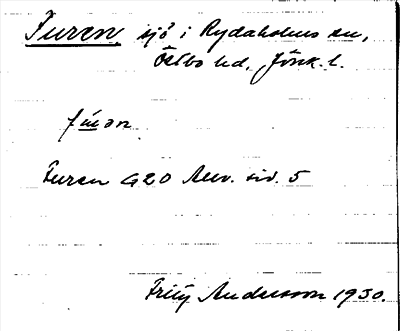 Furen sjö i Rydaholms sn,
Östbo hd, Jönk. l.
fúrən
Furen G20 Anv. sid. 5
Fritz Andersson 1930.